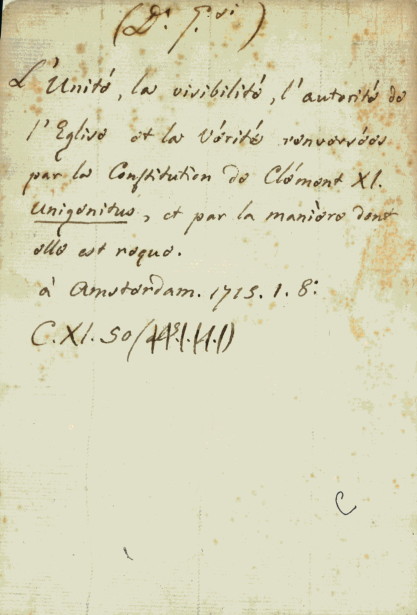 L'Unité, la visibilité, l'autorité de
l'Eglise et la Vérité renversées
par la Constitution de Clément XI.
Unigenitus, et par la manière dont
elle est reque.
à Amsterdam. 1715. 1. 8:
C. XI. 50
C